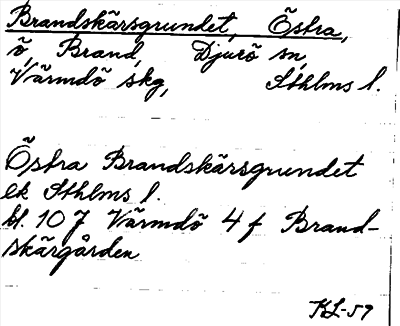 Brandskärsgrundet, Östra,
ö, Brand, Djurö sn,
Värmdö skg, Sthlms l.
Östra Brandskärsgrundet
ek Sthlms l.
bl. 10 7 Värmdö 4 f Brand-
skärgården
KL-59